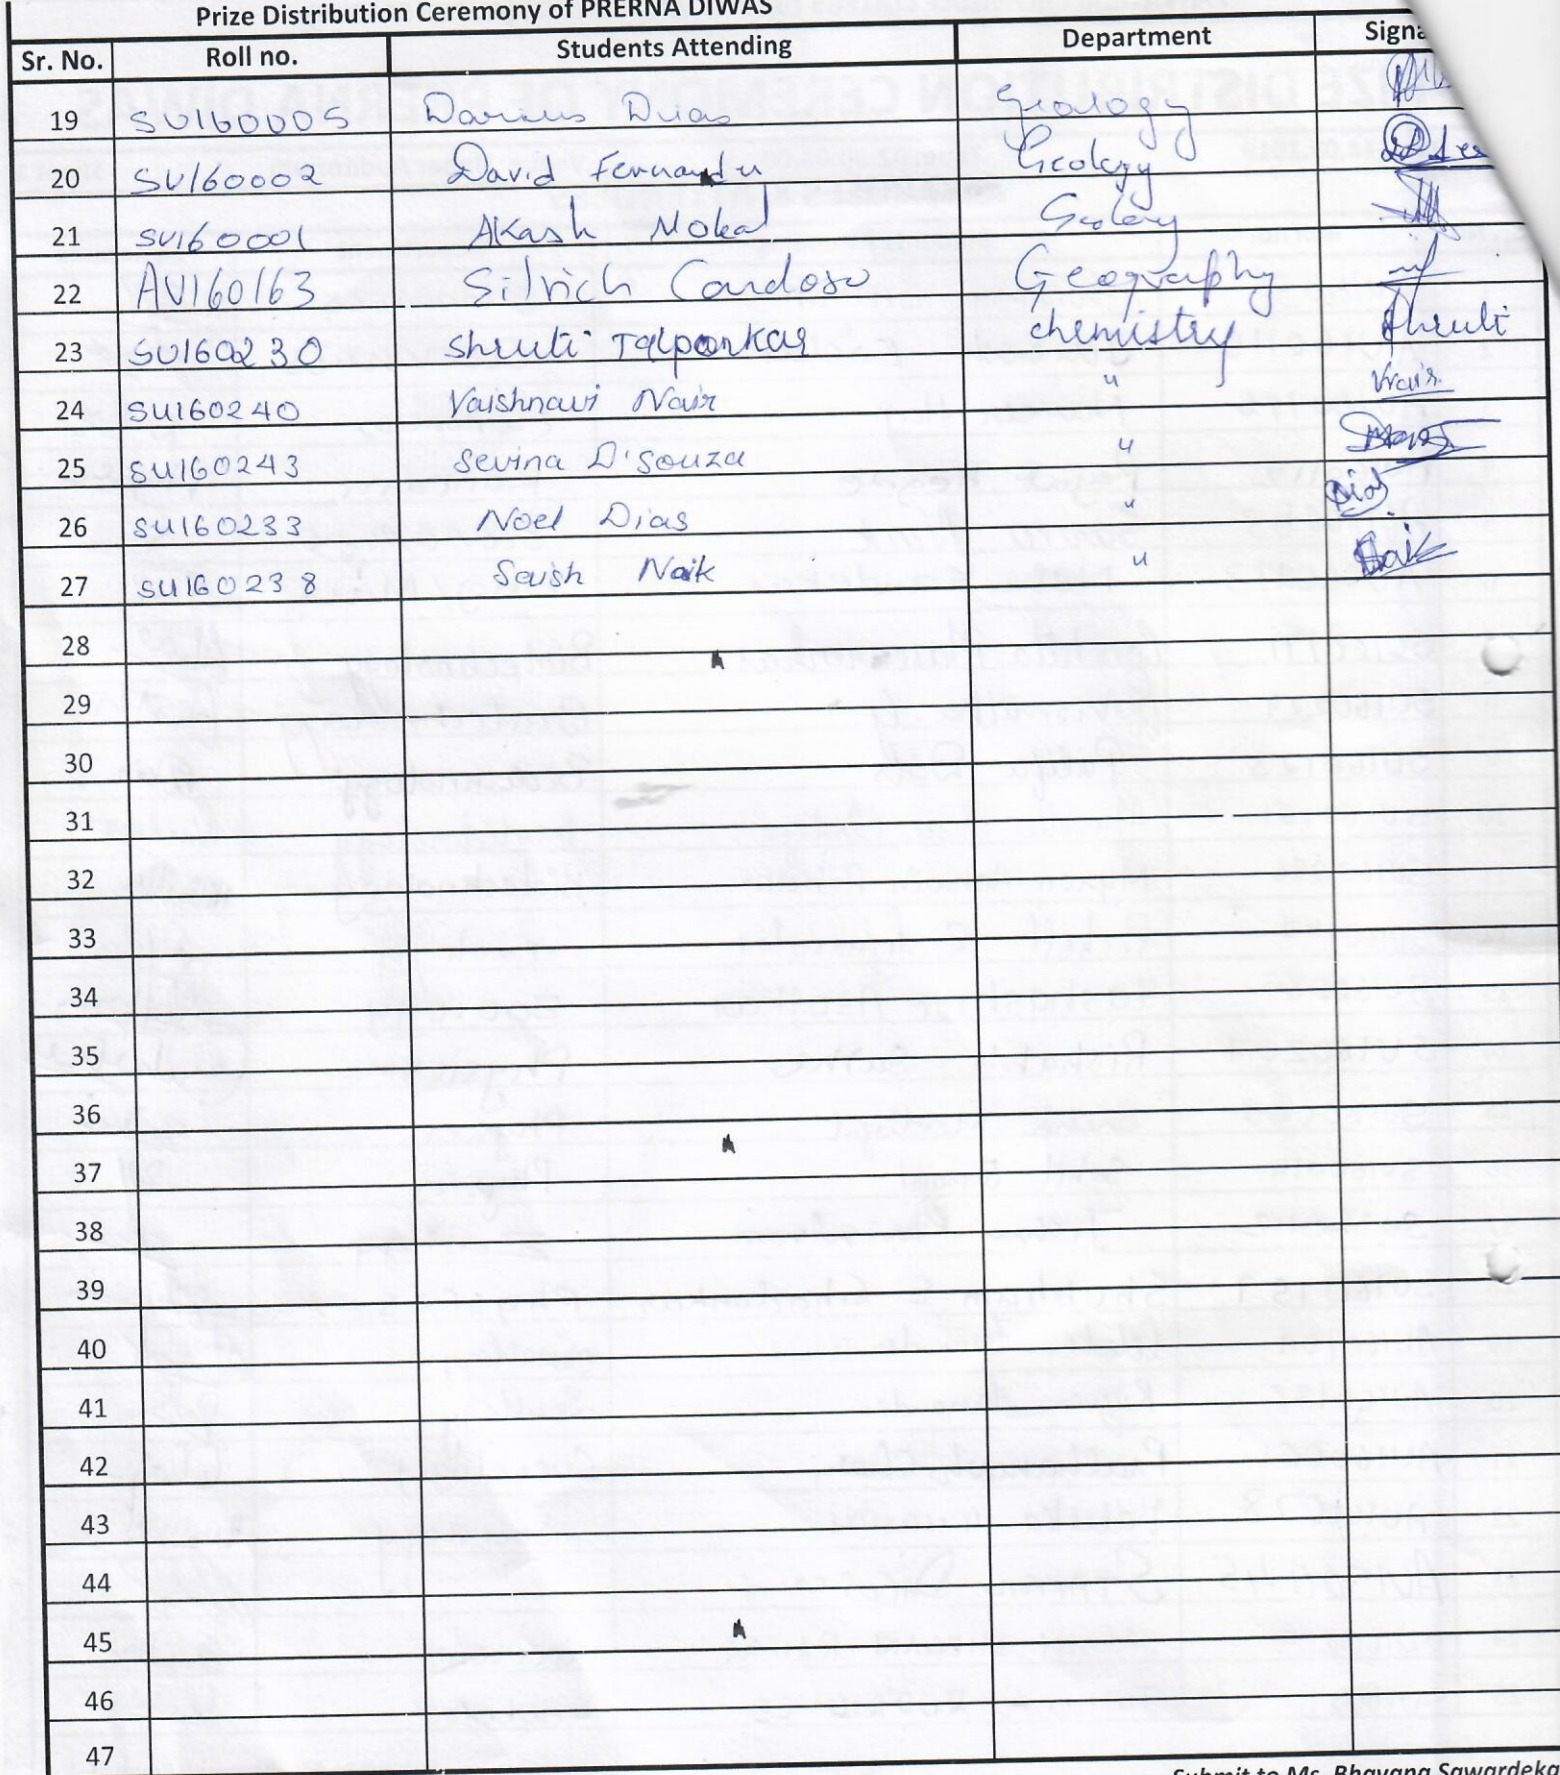 Prize Distribution Ceremony of PRERNA DIWAS
Sr. No. Roll no. Students Attending Department Signa
19 SU160005 Darius Dias Geology
20 SU160002 David Fernandes Geology
21 SU160001 Akash Mokal Geology
22 AU160163 Silvich Cardoso Geography
23 SU160230 Shruti Talpankar chemistry Shruti
24 SU160240 Vaishnavi Nair "
25 SU160243 Sevina D'Souza "
26 SU160233 Noel Dias " Dias
27 SU160238 Saish Naik " Naik
28
29
30
31
32
33
34
35
36
37
38
39
40
41
42
43
44
45
46
47
Submit to Ms. Bhavana Sawardeka